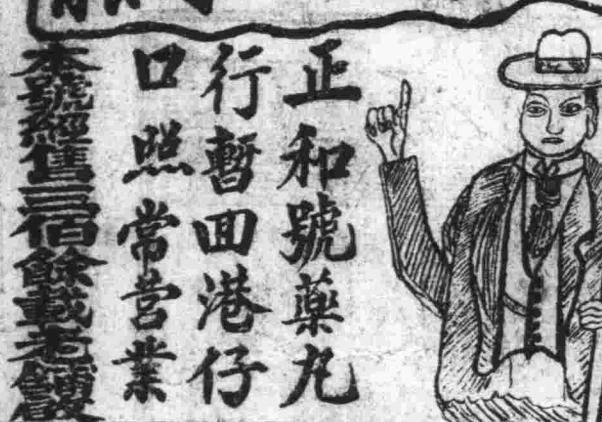 正和號藥丸
行暫囬港仔
口照常营業
本號經售三佰餘載老舖